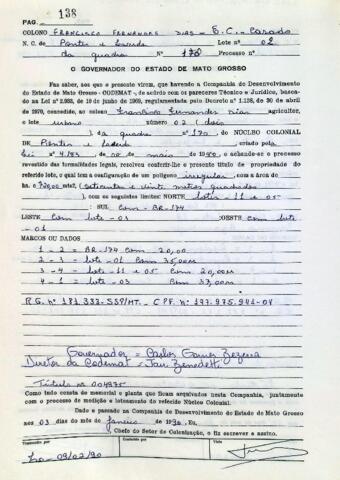 PAG. 138
COLONO FRANCISCO FERNANDES DIAS - B.C. - Casado
N. C. de Pontes e Lacerda Lote nº 02
da quadra Nº 170 Processo nº
O GOVERNADOR DO ESTADO DE MATO GROSSO
Faz saber, aos que o presente virem, que havendo a Companhia de Desenvolvimento
do Estado de Mato Grosso - CODEMAT -, de acôrdo com os pareceres Técnico e Jurídico, basea-
dos na Lei nº 2.933, de 10 de junho de 1969, regulamentada pelo Decreto nº 1.138, de 30 de abril
de 1970, concedido, ao colono Francisco Fernandes Dias agricultor,
o lote urbano número 02 (dois
), da quadra nº 170, do NÚCLEO COLONIAL
DE Pontes e Lacerda criado pela
Lei nº 4.153 de de maio de 1980, e achando-se o processo
investido das formalidades legais, resolveu conferir-lhe o presente título de propriedade do
referido lote, qual tem a configuração de um polígono irregular, com a área de
720,00 mts2, (setecentos e vinte metros quadrados
), com os seguintes limites: NORTE lotes - 11 e 05
SUL com - BR-174
LESTE com lote - 03 :OESTE com lote
- 01
MARCOS OU DADOS
1 - 2 = BR-174 com - 20,00
2 - 3 = lote - 01 com 35,00m
3 - 4 = lotes - 11 e 05 com 20,00m
4 - 1 = lote - 03 com 37,00m
R.G. nº 181.332-SSP/MT. - CPF. nº 177.975.941-04
Governador = Carlos Gomes Bezerra
Diretor da Codemat = Jair Benedetti
Título nº 004875
Como tudo consta do memorial e planta que ficam arquivados nesta Companhia, juntamente
com o processo de medição e loteamento do referido Núcleo Colonial.
Dado e passado na Companhia de Desenvolvimento do Estado de Mato Grosso
aos 03 dias do mês de Janeiro de 1990. Eu,
, Chefe do Setor de Colonização, o fiz escrever e assino.
Conferido Visto
09/02/90